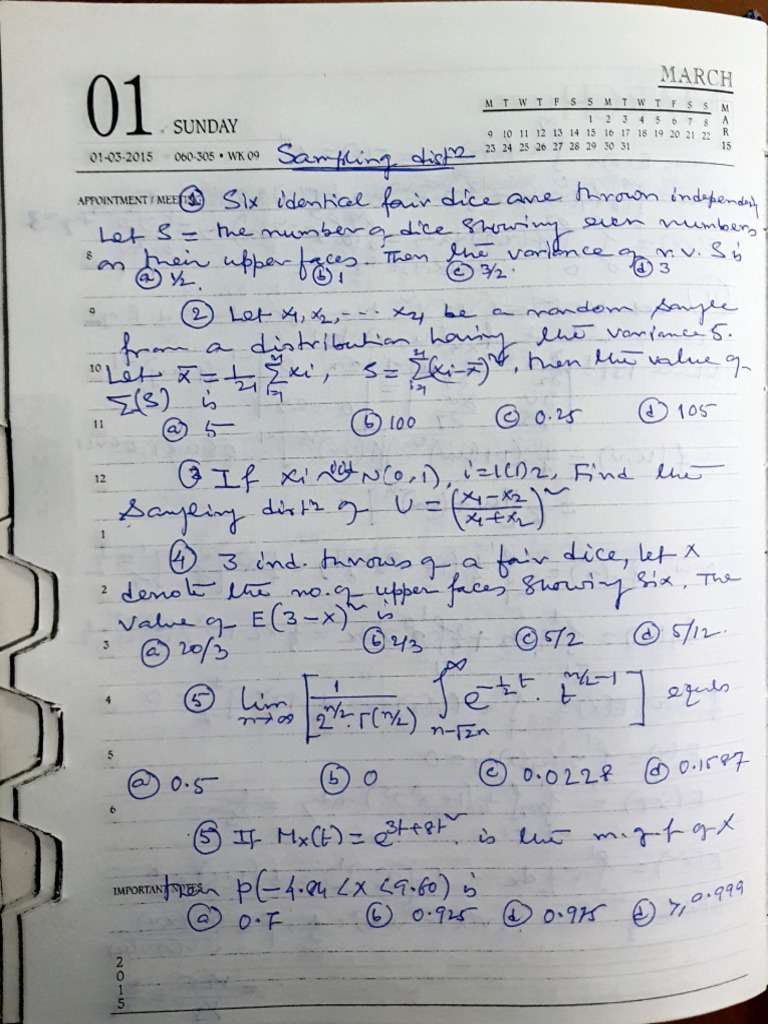 MARCH
01 SUNDAY
M T W T F S S M T W T F S S
1 2 3 4 5 6 7 8
9 10 11 12 13 14 15 16 17 18 19 20 21 22
23 24 25 26 27 28 29 30 31
M A R 15
01-03-2015 060-305 • WK 09 Sampling distⁿ
APPOINTMENT / MEETING ① Six identical fair dice are thrown independently
Let S = the number of dice showing even numbers
8 on their upper faces. Then the variance of r.v. S is
ⓐ 1/2. ⓑ 1 ⓒ 3/2. ⓓ 3
9 ② Let x₁, x₂, ... x₂₁ be a random sample
from a distribution having the variance 5.
10 Let x̄ = 1/21 Σxi, S = Σ(xi-x̄)², then the value of
Σ(S) is
11 ⓐ 5 ⓑ 100 ⓒ 0.25 ⓓ 105
12 ③ If xi iid~ N(0,1), i=1(1)2, Find the
Sampling distⁿ of U = (x₁-x₂ / x₁+x₂)²
1
④ 3 ind. throws of a fair dice, let X
2 denote the no. of upper faces showing six, The
value of E(3-X)² is
3 ⓐ 20/3 ⓑ 2/3 ⓒ 5/2 ⓓ 5/12.
4 ⑤ lim n→∞ [ 1 / 2^(n/2) · Γ(n/2) ∫_(n-√2n)^∞ e^(-½t) · t^(n/2-1) ] equls
5
ⓐ 0.5 ⓑ 0 ⓒ 0.0228 ⓓ 0.1587
6
⑤ If Mx(t) = e^(3t+8t²) is the m.g.f of X
IMPORTANT NOTES then P(-4.84 < X < 9.60) is
ⓐ 0.7 ⓑ 0.925 ⓓ 0.975 ⓓ ≥, 0.999
2015